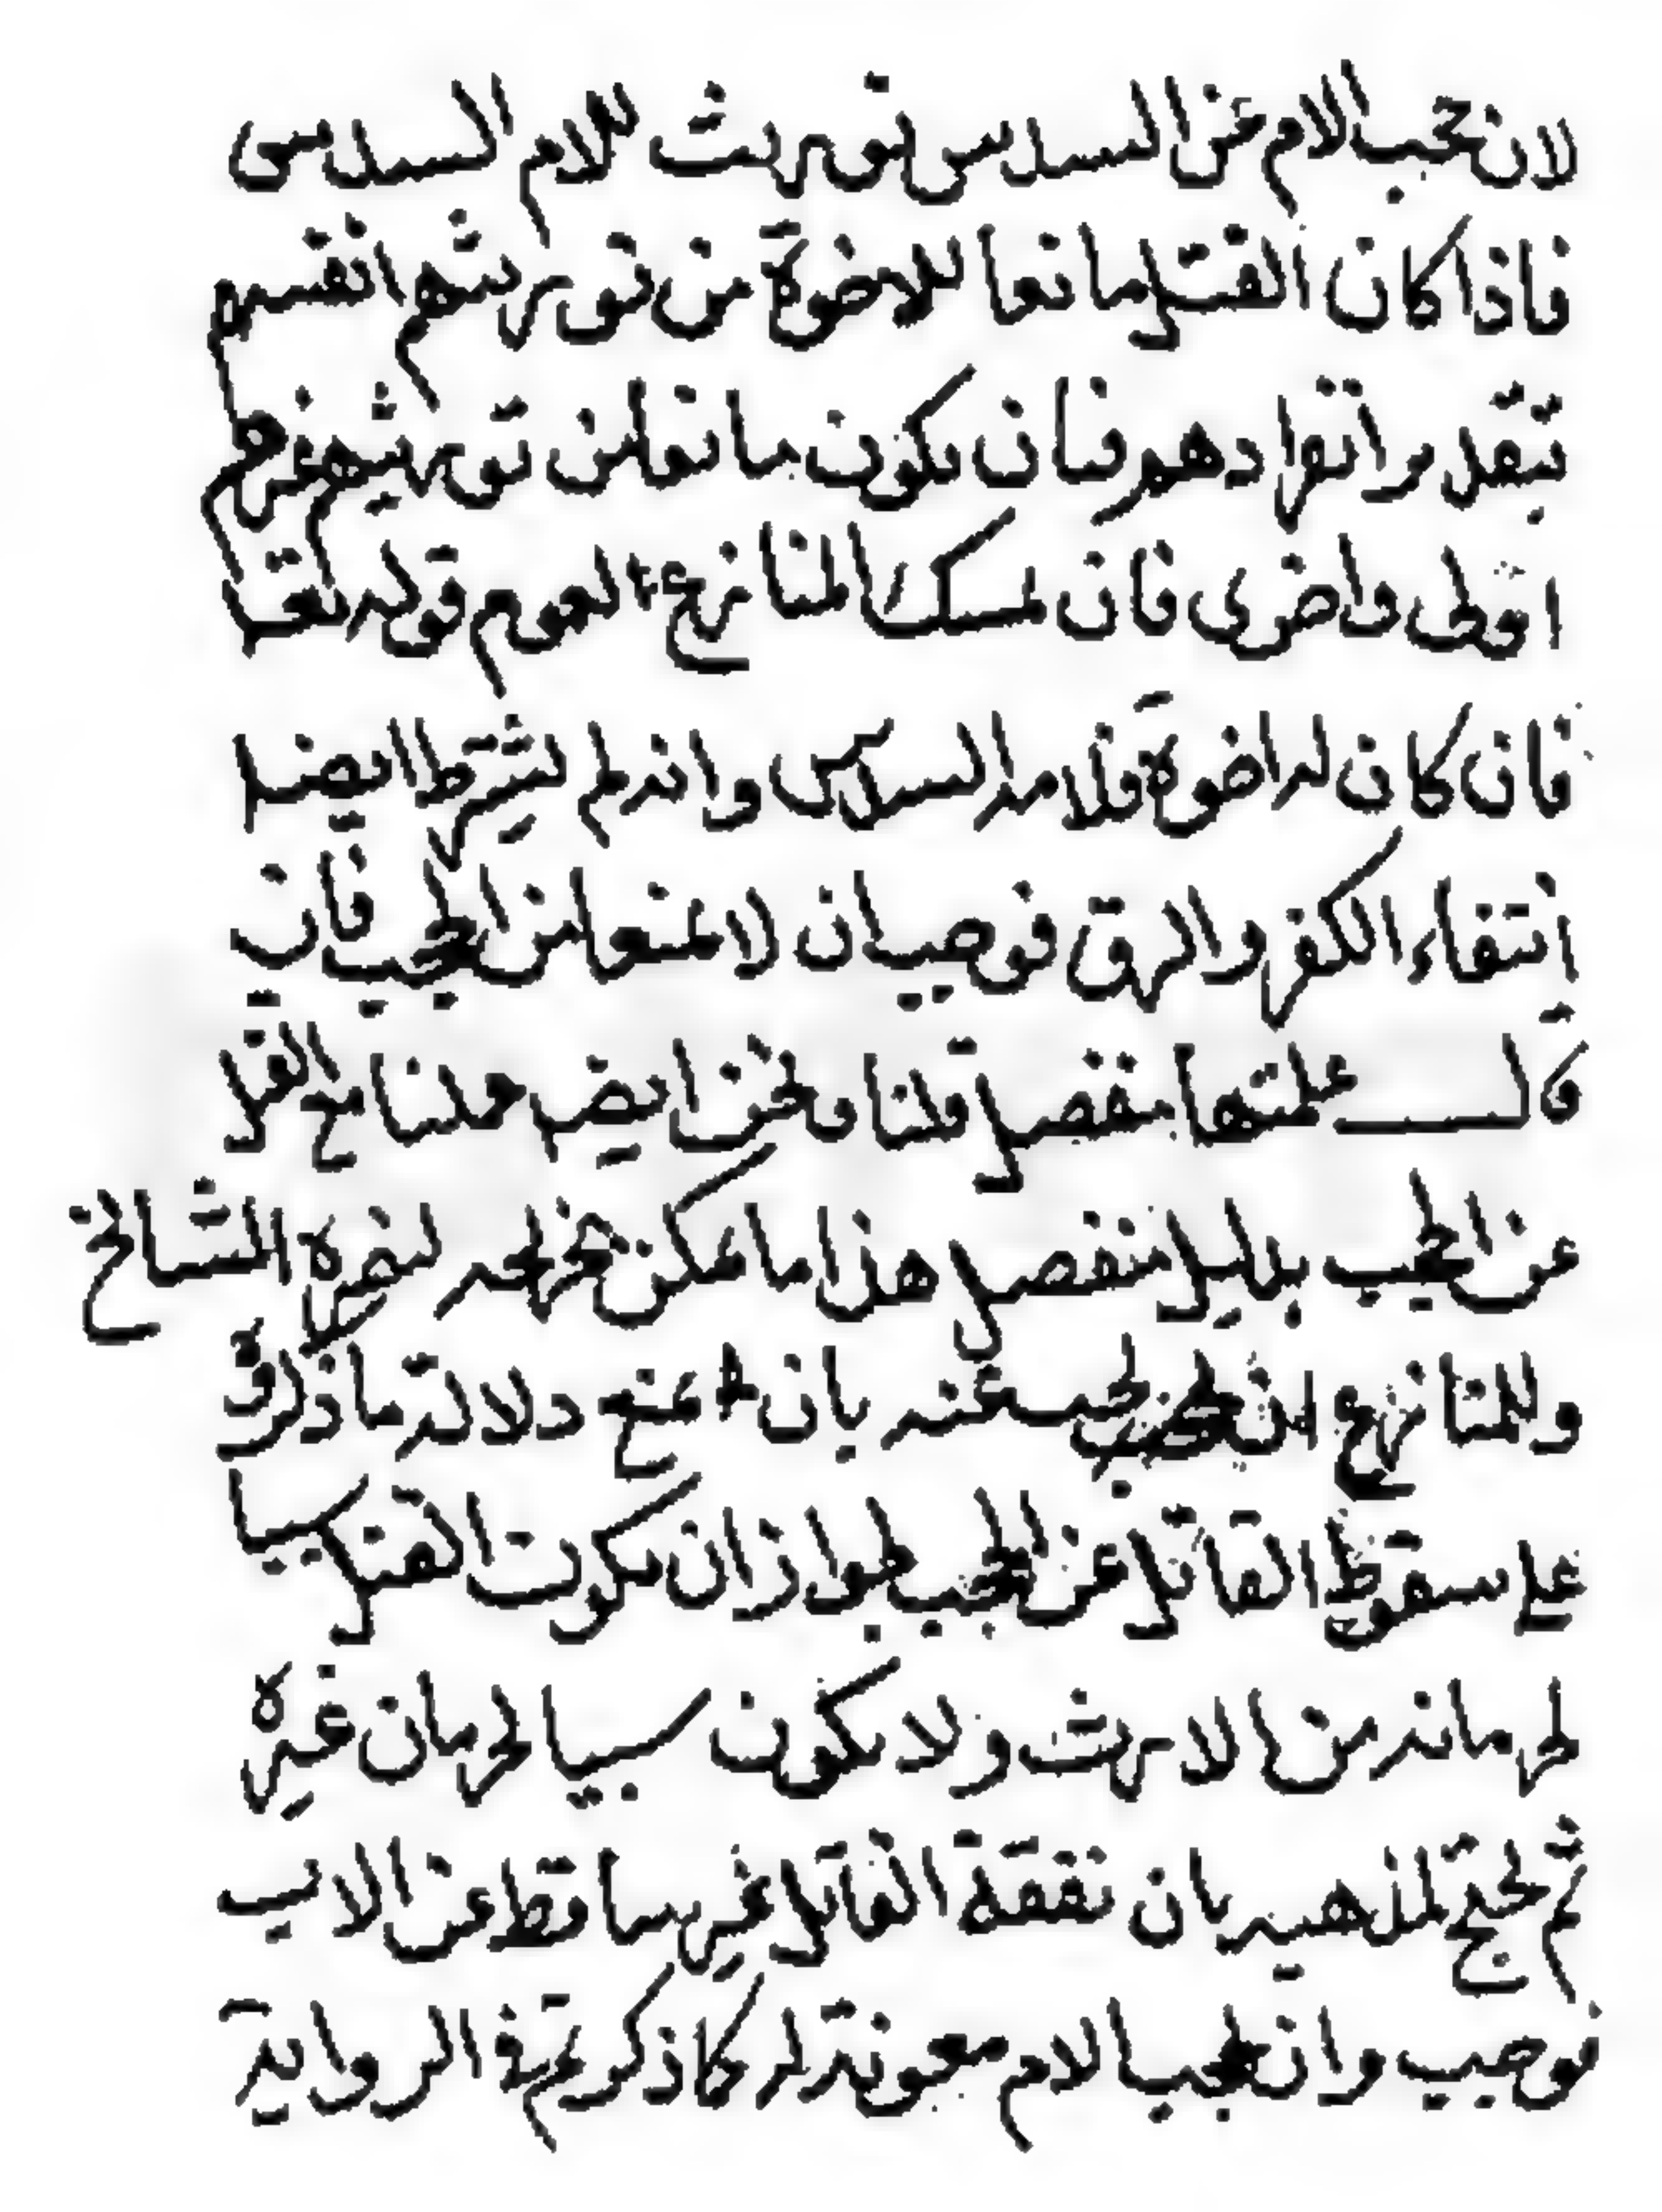 لان حجب الام عن السدس توريث للام السدس
فاذا كان القتل مانعا للاخوة من توريثهم انفسهم
بتقدير انفرادهم فبان يكون مانعا من توريثهم غيرهم
اولى واحرى فان تمسك المنازع بعموم قوله تعا
فان كان له اخوة فلامه السدس وانه لم يشترط ايضا
انتفاء الكفر والرق فوجب ان لا يمنعا من الحجب فان
قال علمتها بمنفصل قلنا ونحن ايض عدلنا مع القتل
عن الحجب بدليل منفصل هذا ما يمكن تخريجه لنصرة المشايخ
وللمنازع ان يجيب عنه بان يمنع دلالة ما ذكر
على سقوط القاتل عن الحجب لجواز ان يكون القتل سببا
لحرمانه من الارث ولا يكون سببا لحرمان غيره
ثم نحتج لمذهبه بان نفقة القاتل غير ساقط عن الاب
فوجب وان تحجب الام معونة له كما ذكرتم في الرواية